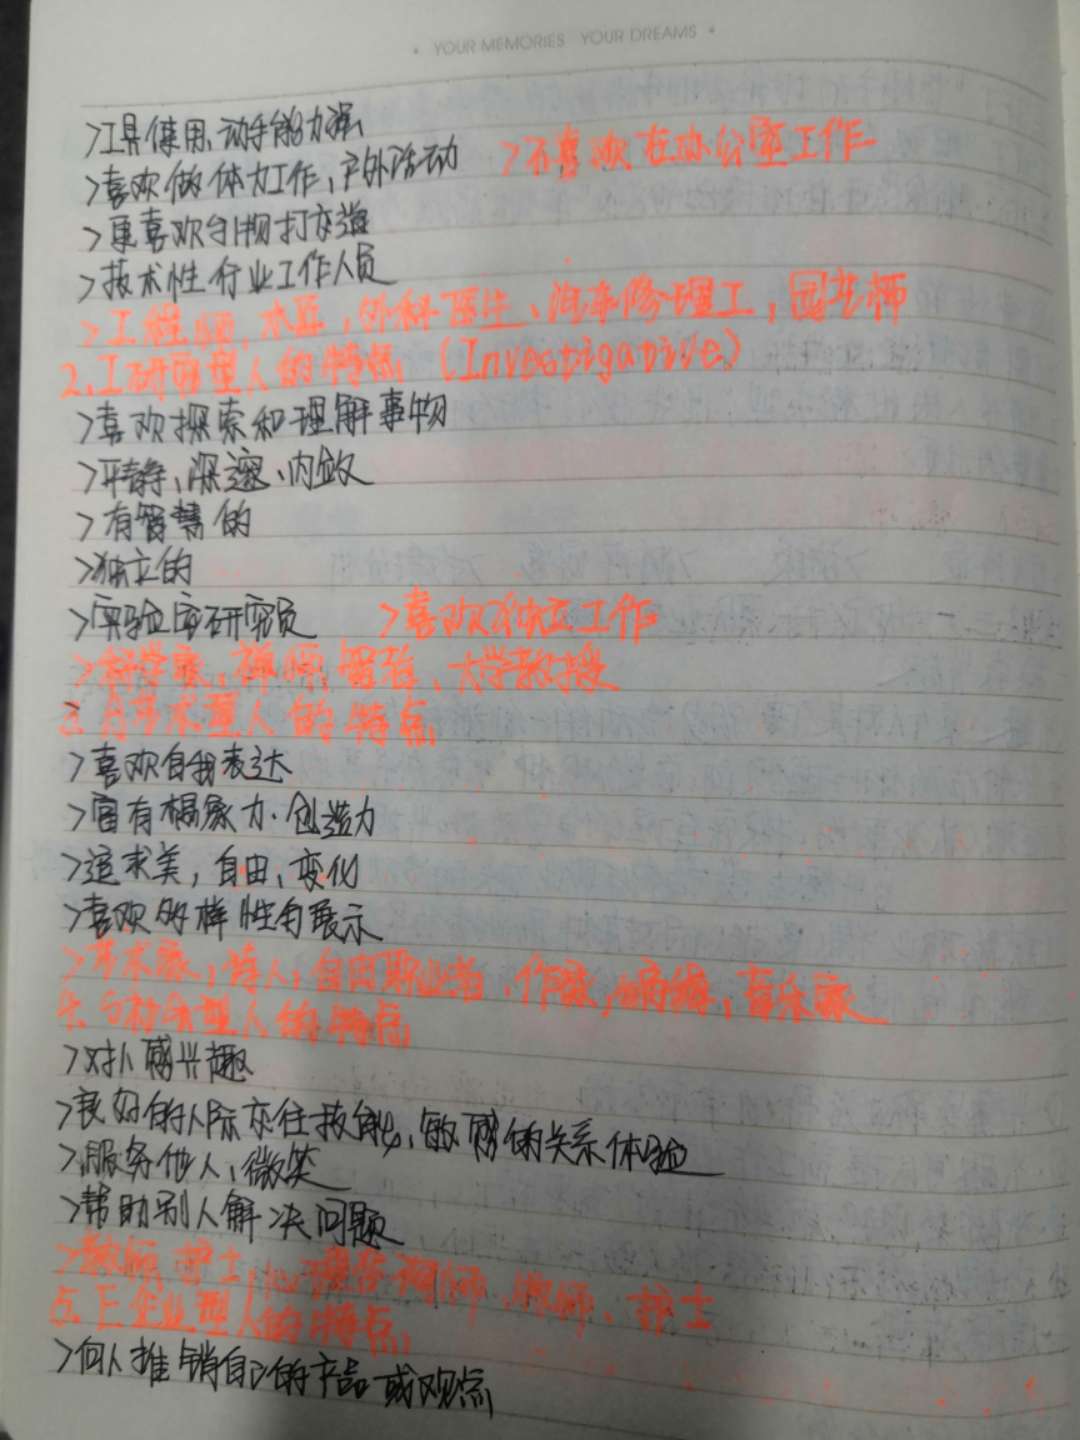 • YOUR MEMORIES YOUR DREAMS •
>工具使用、动手能力强
>喜欢做体力工作，户外活动 >不喜欢在办公室工作
>更喜欢与物打交道
>技术性行业工作人员
>工程师，木匠，外科医生、汽车修理工，园艺师
2.I研究型人的特点 (Investigative)
>喜欢探索和理解事物
>平静、深邃、内敛
>有智慧的
>独立的
>实验室研究员 >喜欢独立工作
>科学家，禅师，智者、大学教授
3.A艺术型人的特点
>喜欢自我表达
>富有想象力·创造力
>追求美，自由、变化
>喜欢多样性与展示
>艺术家，诗人，自由职业者、作家，音乐家
4.S社会型人的特点
>对人感兴趣
>良好的人际交往技能，敏感的关系体验
>服务他人、微笑
>帮助别人解决问题
>教师，护士，师、教师、护士
5.E企业型人的特点
>向人推销自己的产品或观点